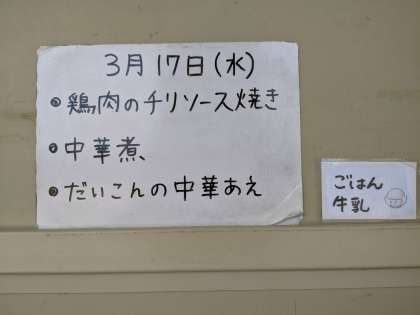 3月17日(水)
●鶏肉のチリソース焼き
●中華煮
●だいこんの中華あえ
ごはん
牛乳